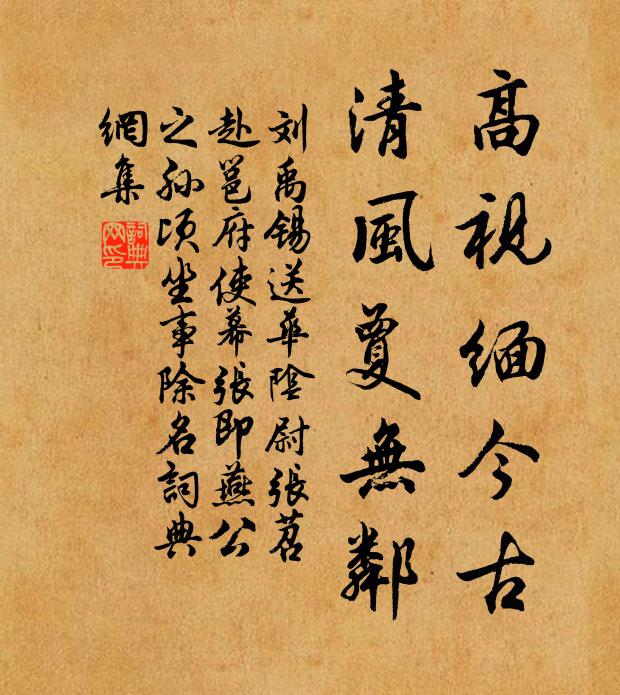 高視緬今古
清風夐無鄰
刘禹錫送華陰尉張苕
赴邕府使幕張即燕公
之孫頃坐事除名詞典
網集
詞典網印